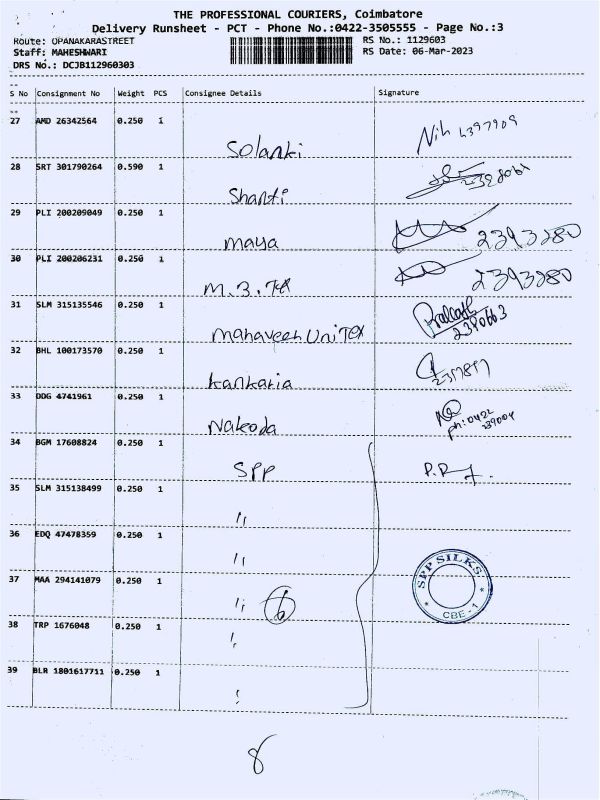 THE PROFESSIONAL COURIERS, Coimbatore
Delivery Runsheet - PCT - Phone No.:0422-3505555 - Page No.:3
Route: OPANAKARASTREET RS No.: 1129603
Staff: MAHESHWARI RS Date: 06-Mar-2023
DRS No.: DCJB112960303
S No Consignment No Weight PCS Consignee Details Signature
27 AMD 26342564 0.250 1 Solanki
28 SRT 301790264 0.590 1 Shanti
29 PLI 200209049 0.250 1 maya 2393280
30 PLI 200206231 0.250 1 M.B.Tex 2393280
31 SLM 315135546 0.250 1 mahaveeh UniTex Prakash 2380663
32 BHL 100173570 0.250 1 kankaria
33 DDG 4741961 0.250 1 Nakoda ph:0422
34 BGM 17608824 0.250 1 SPP
35 SLM 315138499 0.250 1 ,,
36 EDQ 47478359 0.250 1 ,,
37 MAA 294141079 0.250 1 ,, 6
38 TRP 1676048 0.250 1 ,,
39 BLR 1801617711 0.250 1 ,,
SPP SILKS
CBE - 1
8